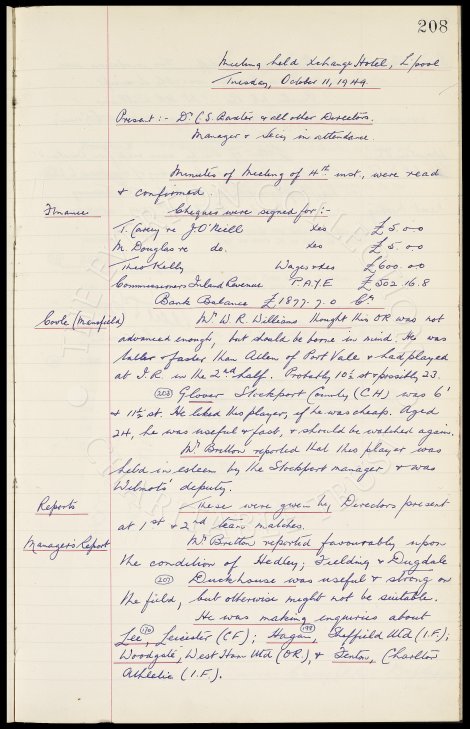 208
Meeting held Xchange Hotel, L'pool
Tuesday, October 11, 1949.
Present :- Dr C.S. Baxter & all other Directors.
Manager & Secy in attendance.
Minutes of Meeting of 4th inst., were read
& confirmed.
Finance
Cheques were signed for :-
T. Casey re J. O'Neill Xes £5.0.0
M. Douglas re do. Xes £5.0.0
Theo Kelly Wages & Xes £600.0.0
Commissioners Inland Revenue P.A.Y.E £502.16.8
Bank Balance £1877.7.0 Cr.
Coole (Mansfield)
Mr W.R. Williams thought this OR was not
advanced enough, but should be borne in mind. He was
taller & faster than Allen of Port Vale & had played
at I.R. in the 2nd half. Probably 10½ st & possibly 23.
(203) Glover Stockport County (C.H) was 6'
& 11½ st. He liked this player, if he was cheap. Aged
24, he was useful & fast, & should be watched again.
Mr Bretton reported that this player was
held in esteem by the Stockport manager & was
Wilmots' deputy.
Reports
These were given by Directors present
at 1st & 2nd team matches.
Managers Report
Mr Bretton reported favourably upon
the condition of Hedley; Fielding & Dugdale
(207) Duckhouse was useful & strong on
the field, but otherwise might not be suitable.
He was making enquiries about
Lee, (170) Leicester (CF); Hagan, (199) Sheffield Utd (I.F);
Woodgate, West Ham Utd (OR), & Fenton, Charlton
Athletic (I.F).